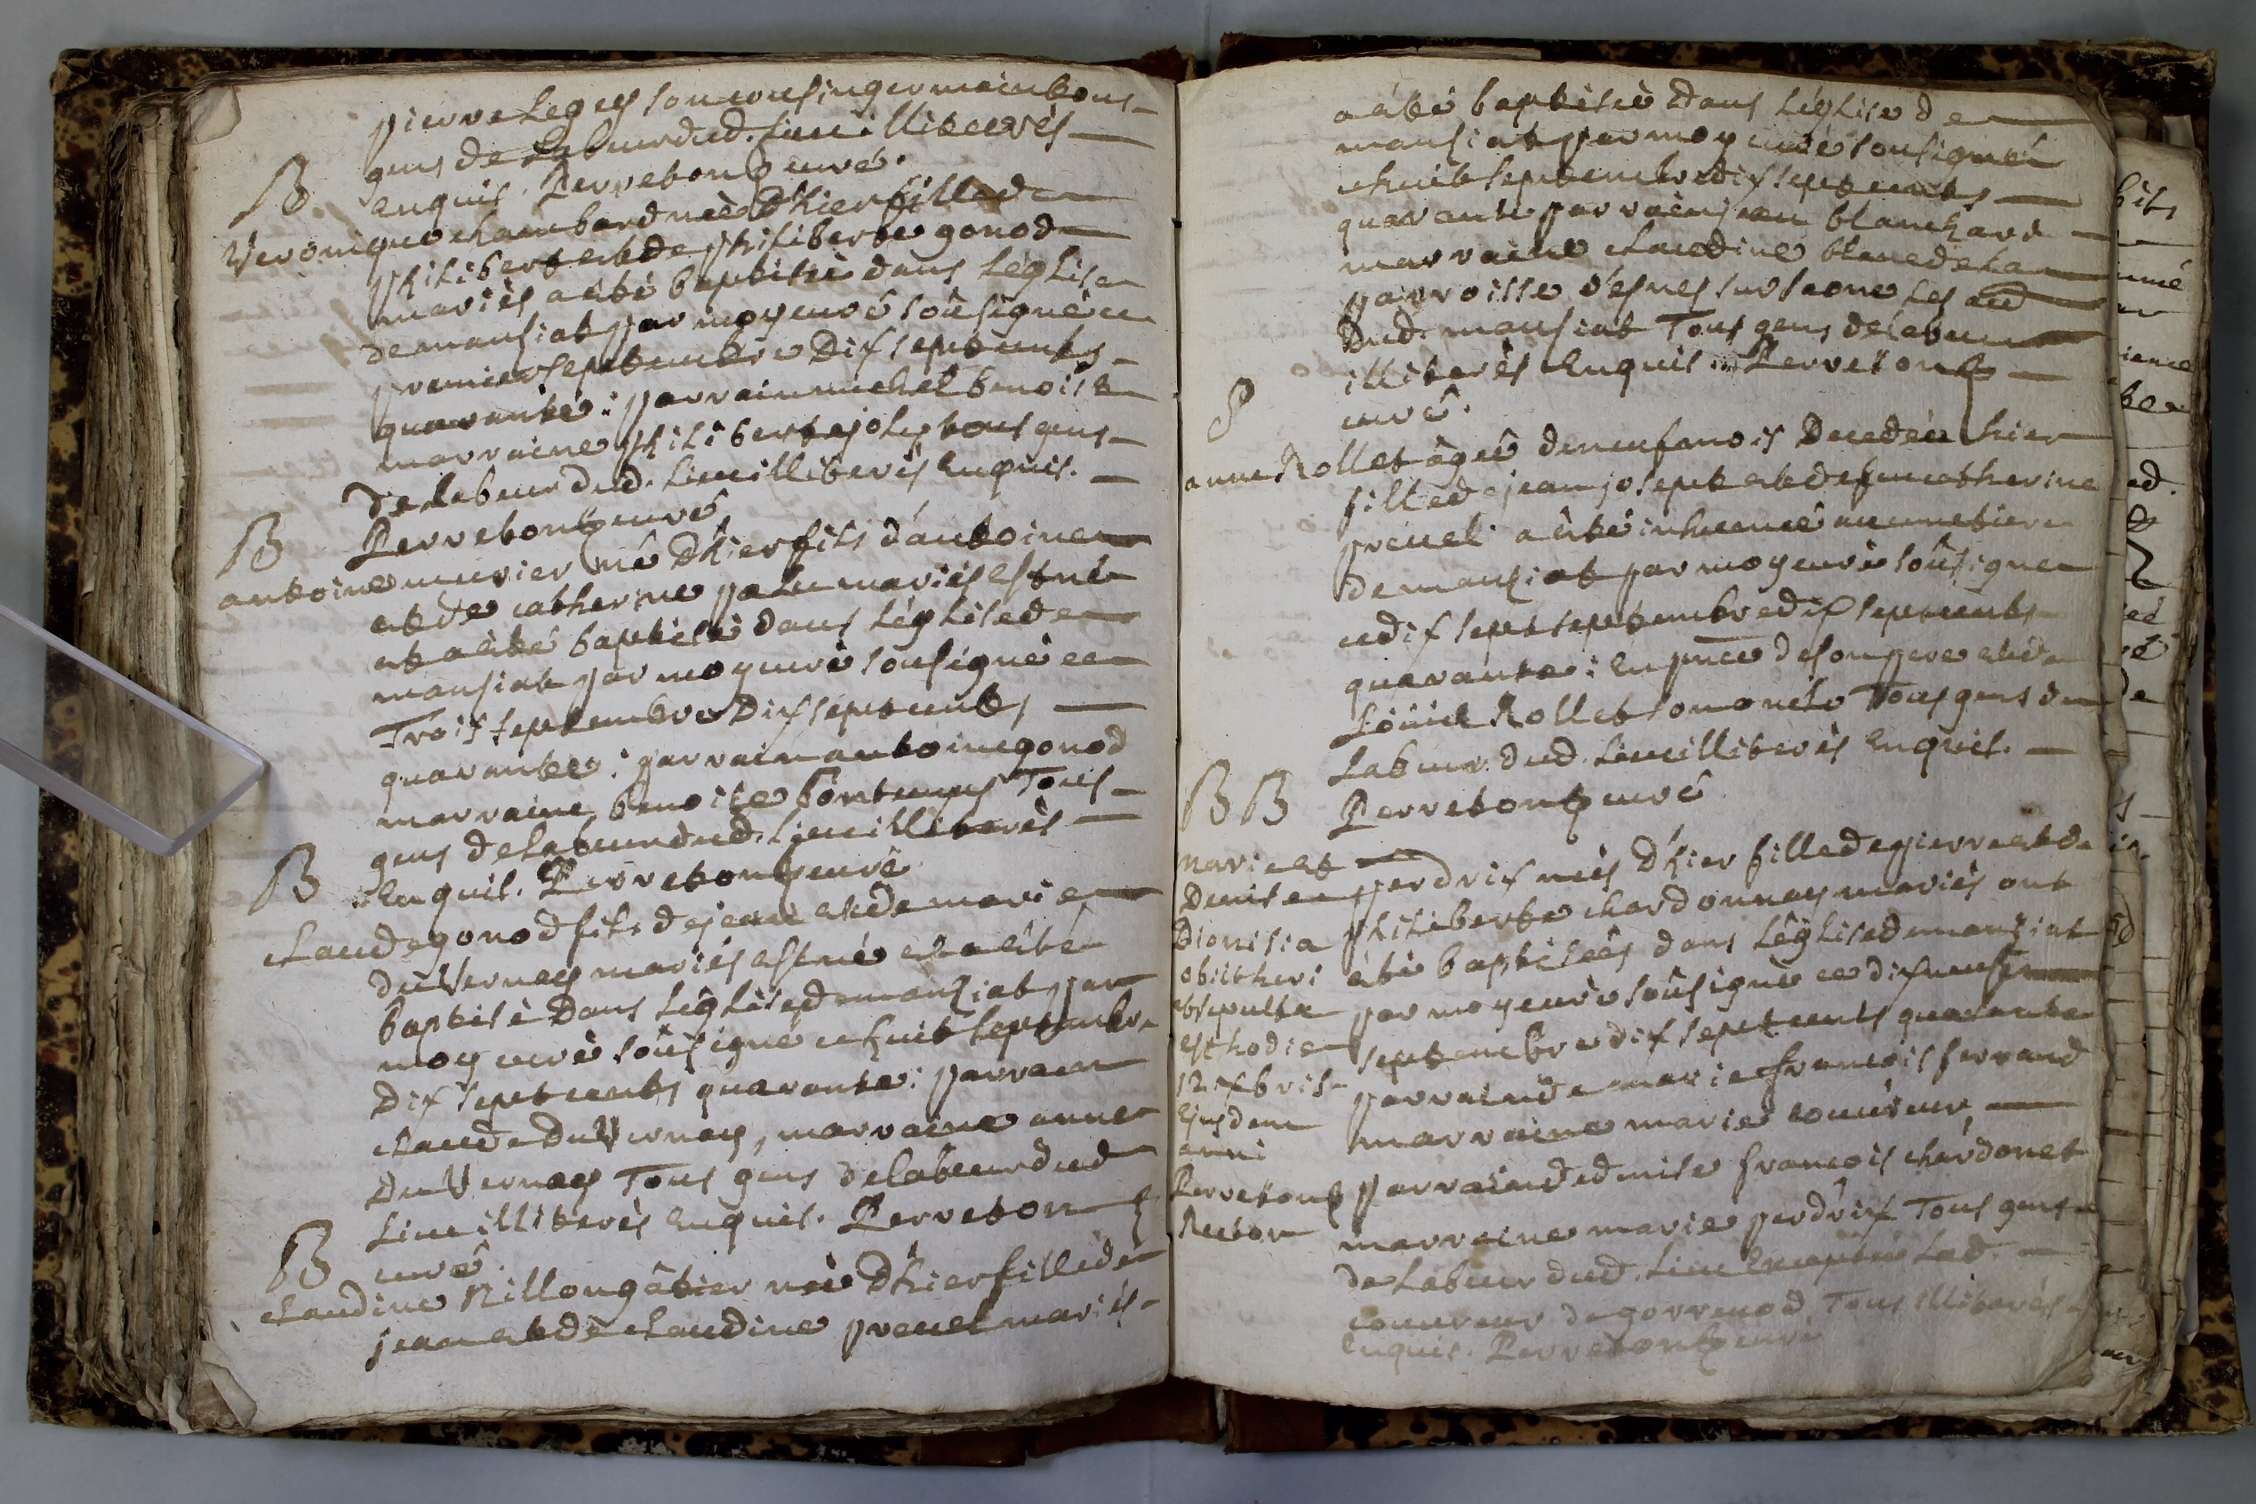 pierre Legey son cousin germain tous
gens de Labeur dud. Lieu illiterés
enquis. Perreton curé.
B
Veronique chambard née D'hier fille de
philibert et de philiberte gonod
mariés a èté baptisée dans Léglise
de manziat par moy curé soûsigné ce
premier septembre Dix sept cents
quarante : parrain michel benoist
marraine philiberte joly tous gens
de labeur dud. Lieu illiterés Enquis.
Perreton curé
B
antoine murier né D'hier fils d'antoine
et de catherine palu mariés est né
et a èté baptisé dans Léglise de
manziat par moy curé soûsigné ce
Trois septembre Dix sept cents
quarante : parrain antoine gonod
marraine benoite Tous
gens de labeur dud. Lieu illiterés
Enquis. Perreton curé
B
claude gonod fils de jean et de marie
duVernay mariés est né et a èté
baptisé Dans Léglise de manziat par
moy curé soûsigné ce huit septembre
Dix sept cents quarante : parrain
claude DuVernay, marraine anne
DuVernay Tous gens de labeur dud
Lieu illiterés Enquis. Perreton
curé.
B
claudine Rillon gâtier née D'hier fille de
jean et de claudine prevel mariés
a èté baptisée Dans Léglise de
manziat par moy curé soûsigné
ce huit septembre dix sept cents
quarante parrain jean blanchard
marraine claudine blanc de La
parroisse d'asnes sur saone Les
dud. manziat Tous gens de labeur
illiterés Enquis Perreton
curé.
S
anne Rollet âgée de neuf mois Decedée hier
fille de jean josept et de feue catherine
prevel a èté inhumée au cimetiere
de manziat par moy curé soûsigné
ce dix sept septembre dix sept cents
quarante : En pnce de son pere et de
Loüis Rollet son oncle Tous gens de
Labeur dud. Lieu illiterés Enquis.
Perreton curé
B B
marie et
Denise perdrix nées D'hier fille de pierre et de
philiberte chardonnay mariés ont
èté baptisées dans Léglise de manziat
par moy curé soûsigné ce dix neuf
septembre dix sept cents quarante
parrain de marie francois ferrand
marraine marie couvreur
parrain de denise francois chardonet
marraine marie perdrix Tous gens
de Labeur dud. Lieu Excepté Lad.
couvreur de gorrevod Tous illiterés
Enquis. Perreton curé
Dionisia
obiit heri
et sepulta
est hodie
12 7bris
Ejusdem
anni
Perreton
Rector